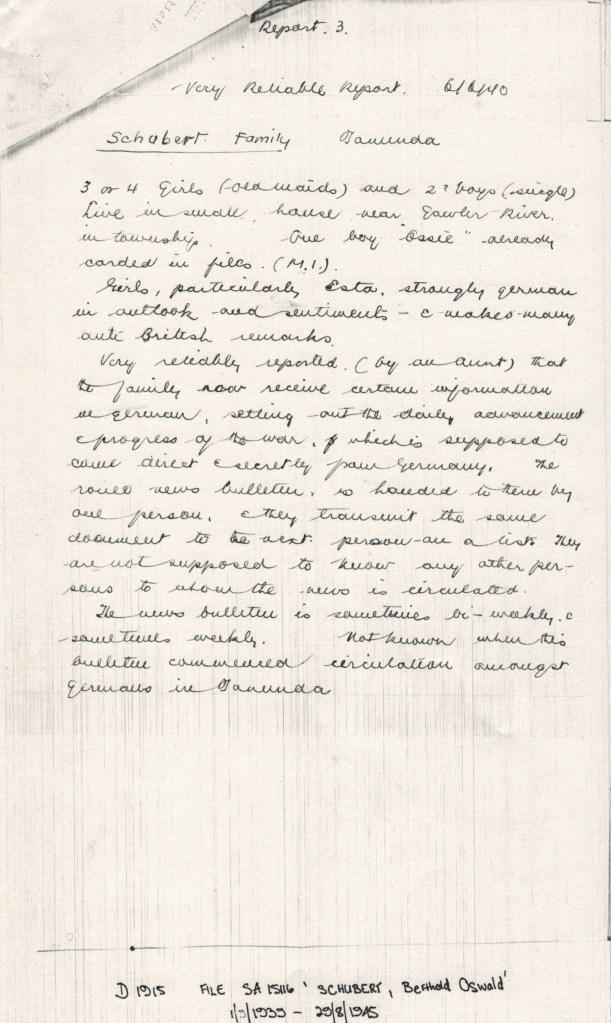 Report. 3.
Very Reliable Report. 6/6/40
Schubert Family Tanunda
3 or 4 Girls (old maids) and 2? boys (single)
Live in small house near Gawler River.
in township. One boy "Ossie" already
carded in files. (M.I.).
Girls, particularly Esta, strongly german
in outlook and sentiments - c makes many
anti British remarks.
Very reliably reported. (by an Aunt) that
the family now receive certain information
in german, setting out the daily advancement
c progress of the war, which is supposed to
come direct c secretly from Germany. The
roneo news bulletin, is handed to them by
one person, c they transmit the same
document to the next person on a list. They
are not supposed to know any other per-
sons to whom the news is circulated.
The news bulletin is sometimes bi-weekly. c
sometimes weekly. Not known when this
bulletin commenced circulation amongst
Germans in Tanunda
D 1915 FILE SA 15116 'SCHUBERT, Berthold Oswald'
1/9/1939 - 29/8/1945